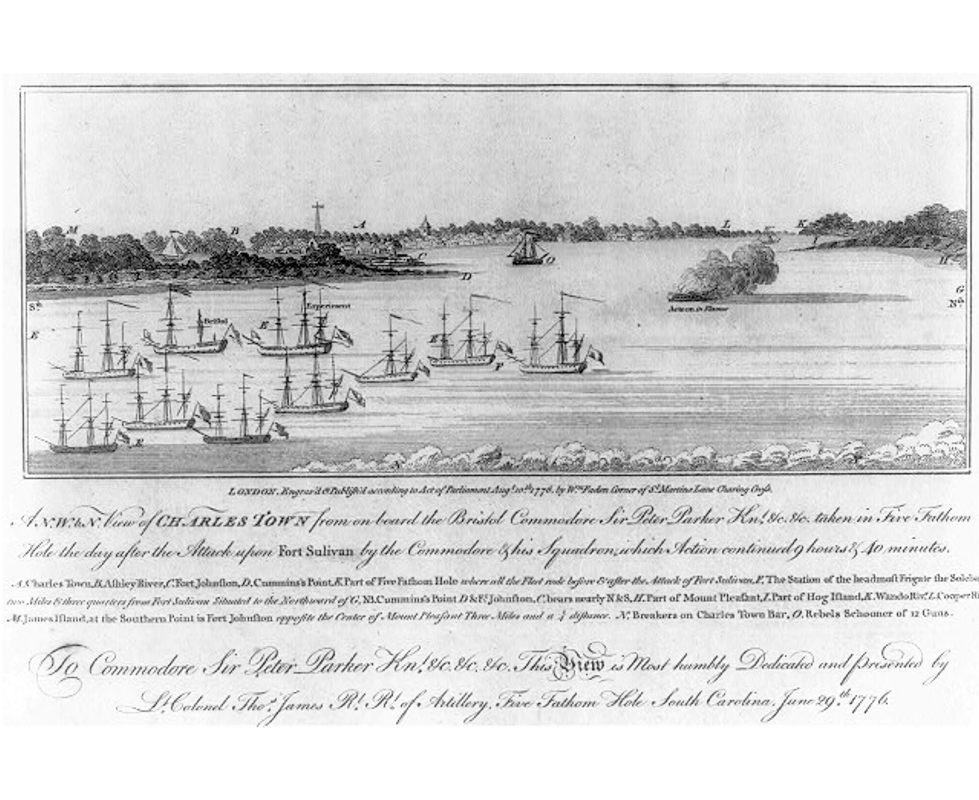 M
B
A
L
K
C
O
D
H
G
Sth
Nth
E
Bristol
Experiment
E
E
F
Acteon in Flames
E
N
LONDON, Engrav'd & Publish'd according to Act of Parliament Augt. 10th. 1776, by Wm. Faden Corner of St. Martins Lane Charing Cross.
A N.W.b.N. View of CHARLES TOWN from on board the Bristol Commodore Sir Peter Parker Knt. &c. &c. taken in Five Fathom
Hole the day after the Attack upon Fort Sulivan by the Commodore & his Squadron, which Action continued 9 hours & 40 minutes.
A, Charles Town, B, Ashley River, C, Fort Johnston, D, Cummins's Point, E, Part of Five Fathom Hole where all the Fleet rode before & after the Attack of Fort Sulivan, F, The Station of the headmost Frigate the Soleb
two Miles & three quarters from Fort Sulivan Situated to the Northward of G, NB. Cummins's Point D & Ft. Johnston, C, bears nearly N & S, H, Part of Mount Pleasant, I, Part of Hog Island, K, Wando Rivr. L, Cooper Ri
M, James Island, at the Southern Point is Fort Johnston opposite the Center of Mount Pleasant Three Miles and a ¼ distance. N, Breakers on Charles Town Bar, O, Rebels Schooner of 12 Guns.
To Commodore Sir Peter Parker Knt. &c. &c. &c. This View is Most humbly Dedicated and Presented by
Lt. Colonel Thos. James Rl. Rt. of Artillery, Five Fathom Hole South Carolina, June 29th. 1776.